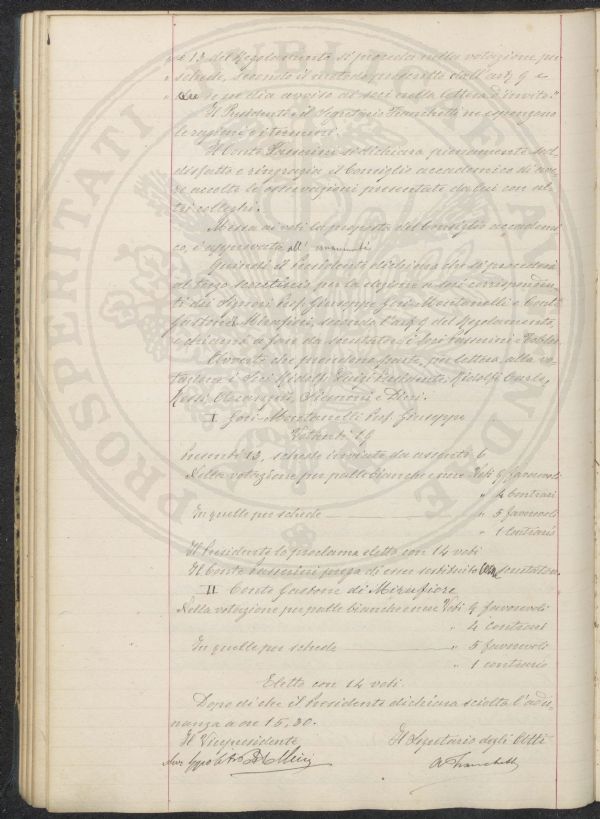 13 del Regolamento si proceda nella votazione per
schede, secondo il metodo prescritto dall'art. 9 e
se ne dia avviso ai soci nella lettera d'invito."
Il Presidente e il Segretario Franchetti ne espongono
le ragioni e i termini.
Il Conte Passerini si dichiara pienamente sod
disfatto e ringrazia il Consiglio accademico di ave
re accolto le osservazioni presentate da lui con al
tri colleghi.
Messa ai voti la proposta del Consiglio accademi
co, è approvata all' unanimità
Quindi il Presidente dichiara che si procederà
al terzo scrutinio per la elezione a soci corrisponden
ti dei Signori Prof. Giuseppe Gori Montanelli e Conte
Gastone Mirafiori, secondo l'art. 9 del Regolamento,
e chiama a fare da scrutatori i Soci Passerini e
Avverte che prendono parte, per lettera, alla vo
tazione i Soci Ridolfi Luigi, Ridolfi Carlo,
e Dini.
I Gori-Montanelli Prof. Giuseppe
Votanti 19
Presenti 13, schede inviate da assenti 6
Nella votazione per palle bianche e nere Voti 9 favorevoli
" 4 contrari
In quelle per schede " 5 favorevoli
" 1 contrario
Il Presidente lo proclama eletto con 14 voti
Il Conte Passerini prega di esser sostituito come scrutatore.
II Conte Gastone di Mirafiore
Nella votazione per palle bianche e nere Voti 9 favorevoli
" 4 contrari
In quelle per schede " 5 favorevoli
" 1 contrario
Eletto con 14 voti.
Dopo di che il Presidente dichiara sciolta l'adu
nanza a ore 15,20.
Il Vicepresidente Il Segretario degli Atti
A Franchetti
PROSPERITATI PUBLICAE AUGENDAE